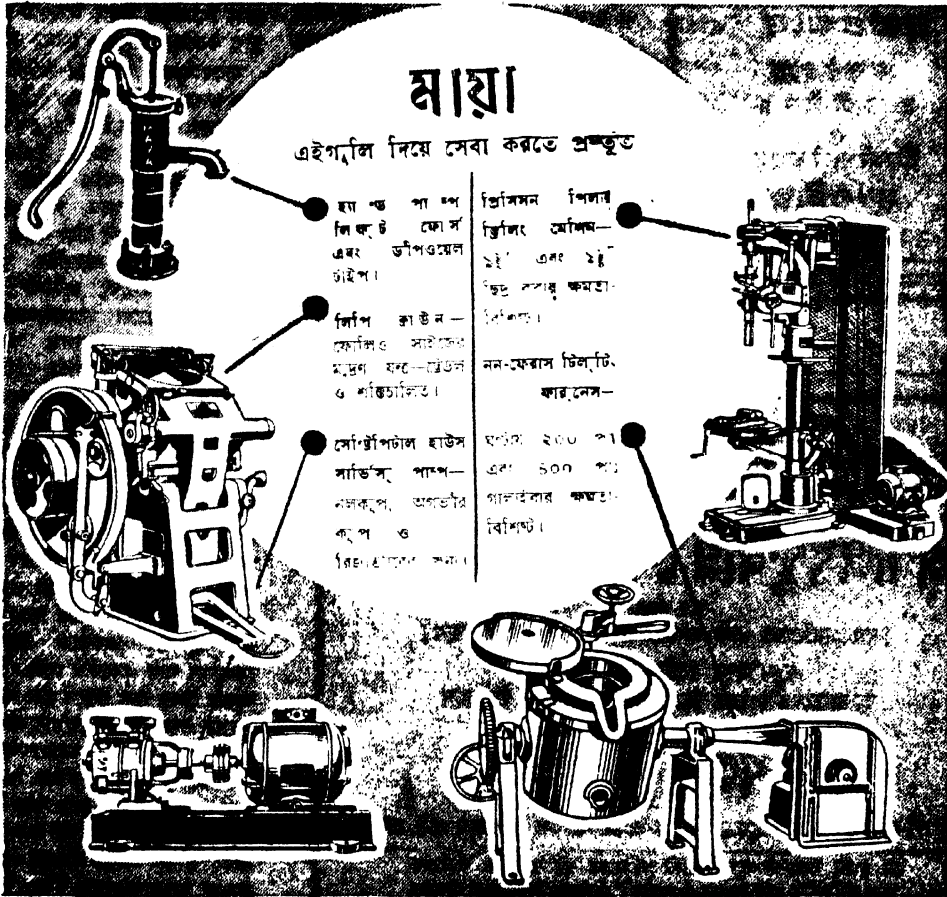 মায়া
এইগুলি দিয়ে সেবা করতে প্রস্তুত
হ্যাণ্ড পাম্প
লিফ্ট ফোর্স
এবং ডীপওয়েল
টাইপ।
লিপি ক্রাউন—
ফোলিও সাইজের
মুদ্রণ যন্ত্র—ট্রেডল
ও শক্তিচালিত।
সেন্ট্রিপিটাল হাউস
সার্ভিস্ পাম্প—
নলকূপ, অগভীর
কূপ ও
জন্য।
প্রিসিসন পিলার
ড্রিলিং মেশিন—
এবং
ছিদ্র করার ক্ষমতা-
বিশিষ্ট।
নন-ফেরাস টিল্টিং
ফারনেস—
ঘণ্টায় ২০০ পাঃ
এবং ৬০০ পাঃ
গালাইবার ক্ষমতা-
বিশিষ্ট।